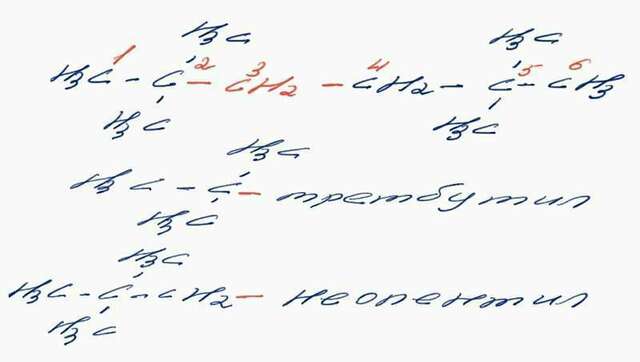 H3C H3C
1 2 3 4 5 6
H3C - C - CH2 - CH2 - C - CH3
H3C H3C
H3C
H3C - C - третбутил
H3C
H3C
H3C - C - CH2 - неопентил
H3C